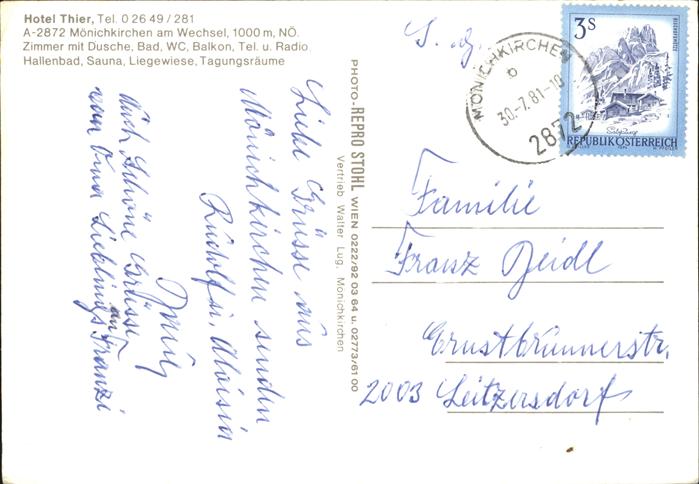 Hotel Thier, Tel. 0 26 49 / 281
A-2872 Mönichkirchen am Wechsel, 1000 m, NÖ.
Zimmer mit Dusche, Bad, WC, Balkon, Tel. u. Radio
Hallenbad, Sauna, Liegewiese, Tagungsräume
Liebe Grüsse aus
Mönichkirchen senden
Rudolf u. Aloisia
Auch schöne Grüsse
von Oma an
Lieblings Franzi
PHOTO-REPRO STOHL WIEN 0222/92 03 64 u. 02773/61 00
Vertrieb Walter Lug, Mönichkirchen
MÖNICHKIRCHEN
b
30.-7.81-10
2872
3 S
REPUBLIK ÖSTERREICH
Familie
Franz Zeidl
Ernstbrunnerstr.
2003 Leitzersdorf